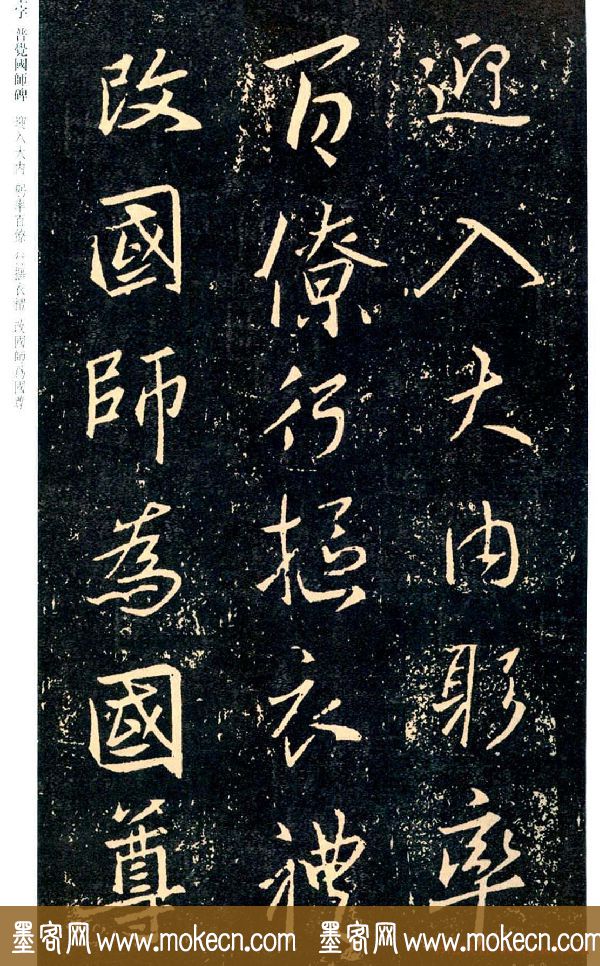 迎入大内躬率
百僚行摳衣禮
改國師為國尊
字 普覺國師碑 迎入大内 躬率百僚 行摳衣禮 改國師為國尊
墨客网 www.mokecn.com 墨客网 www.mokecn.com